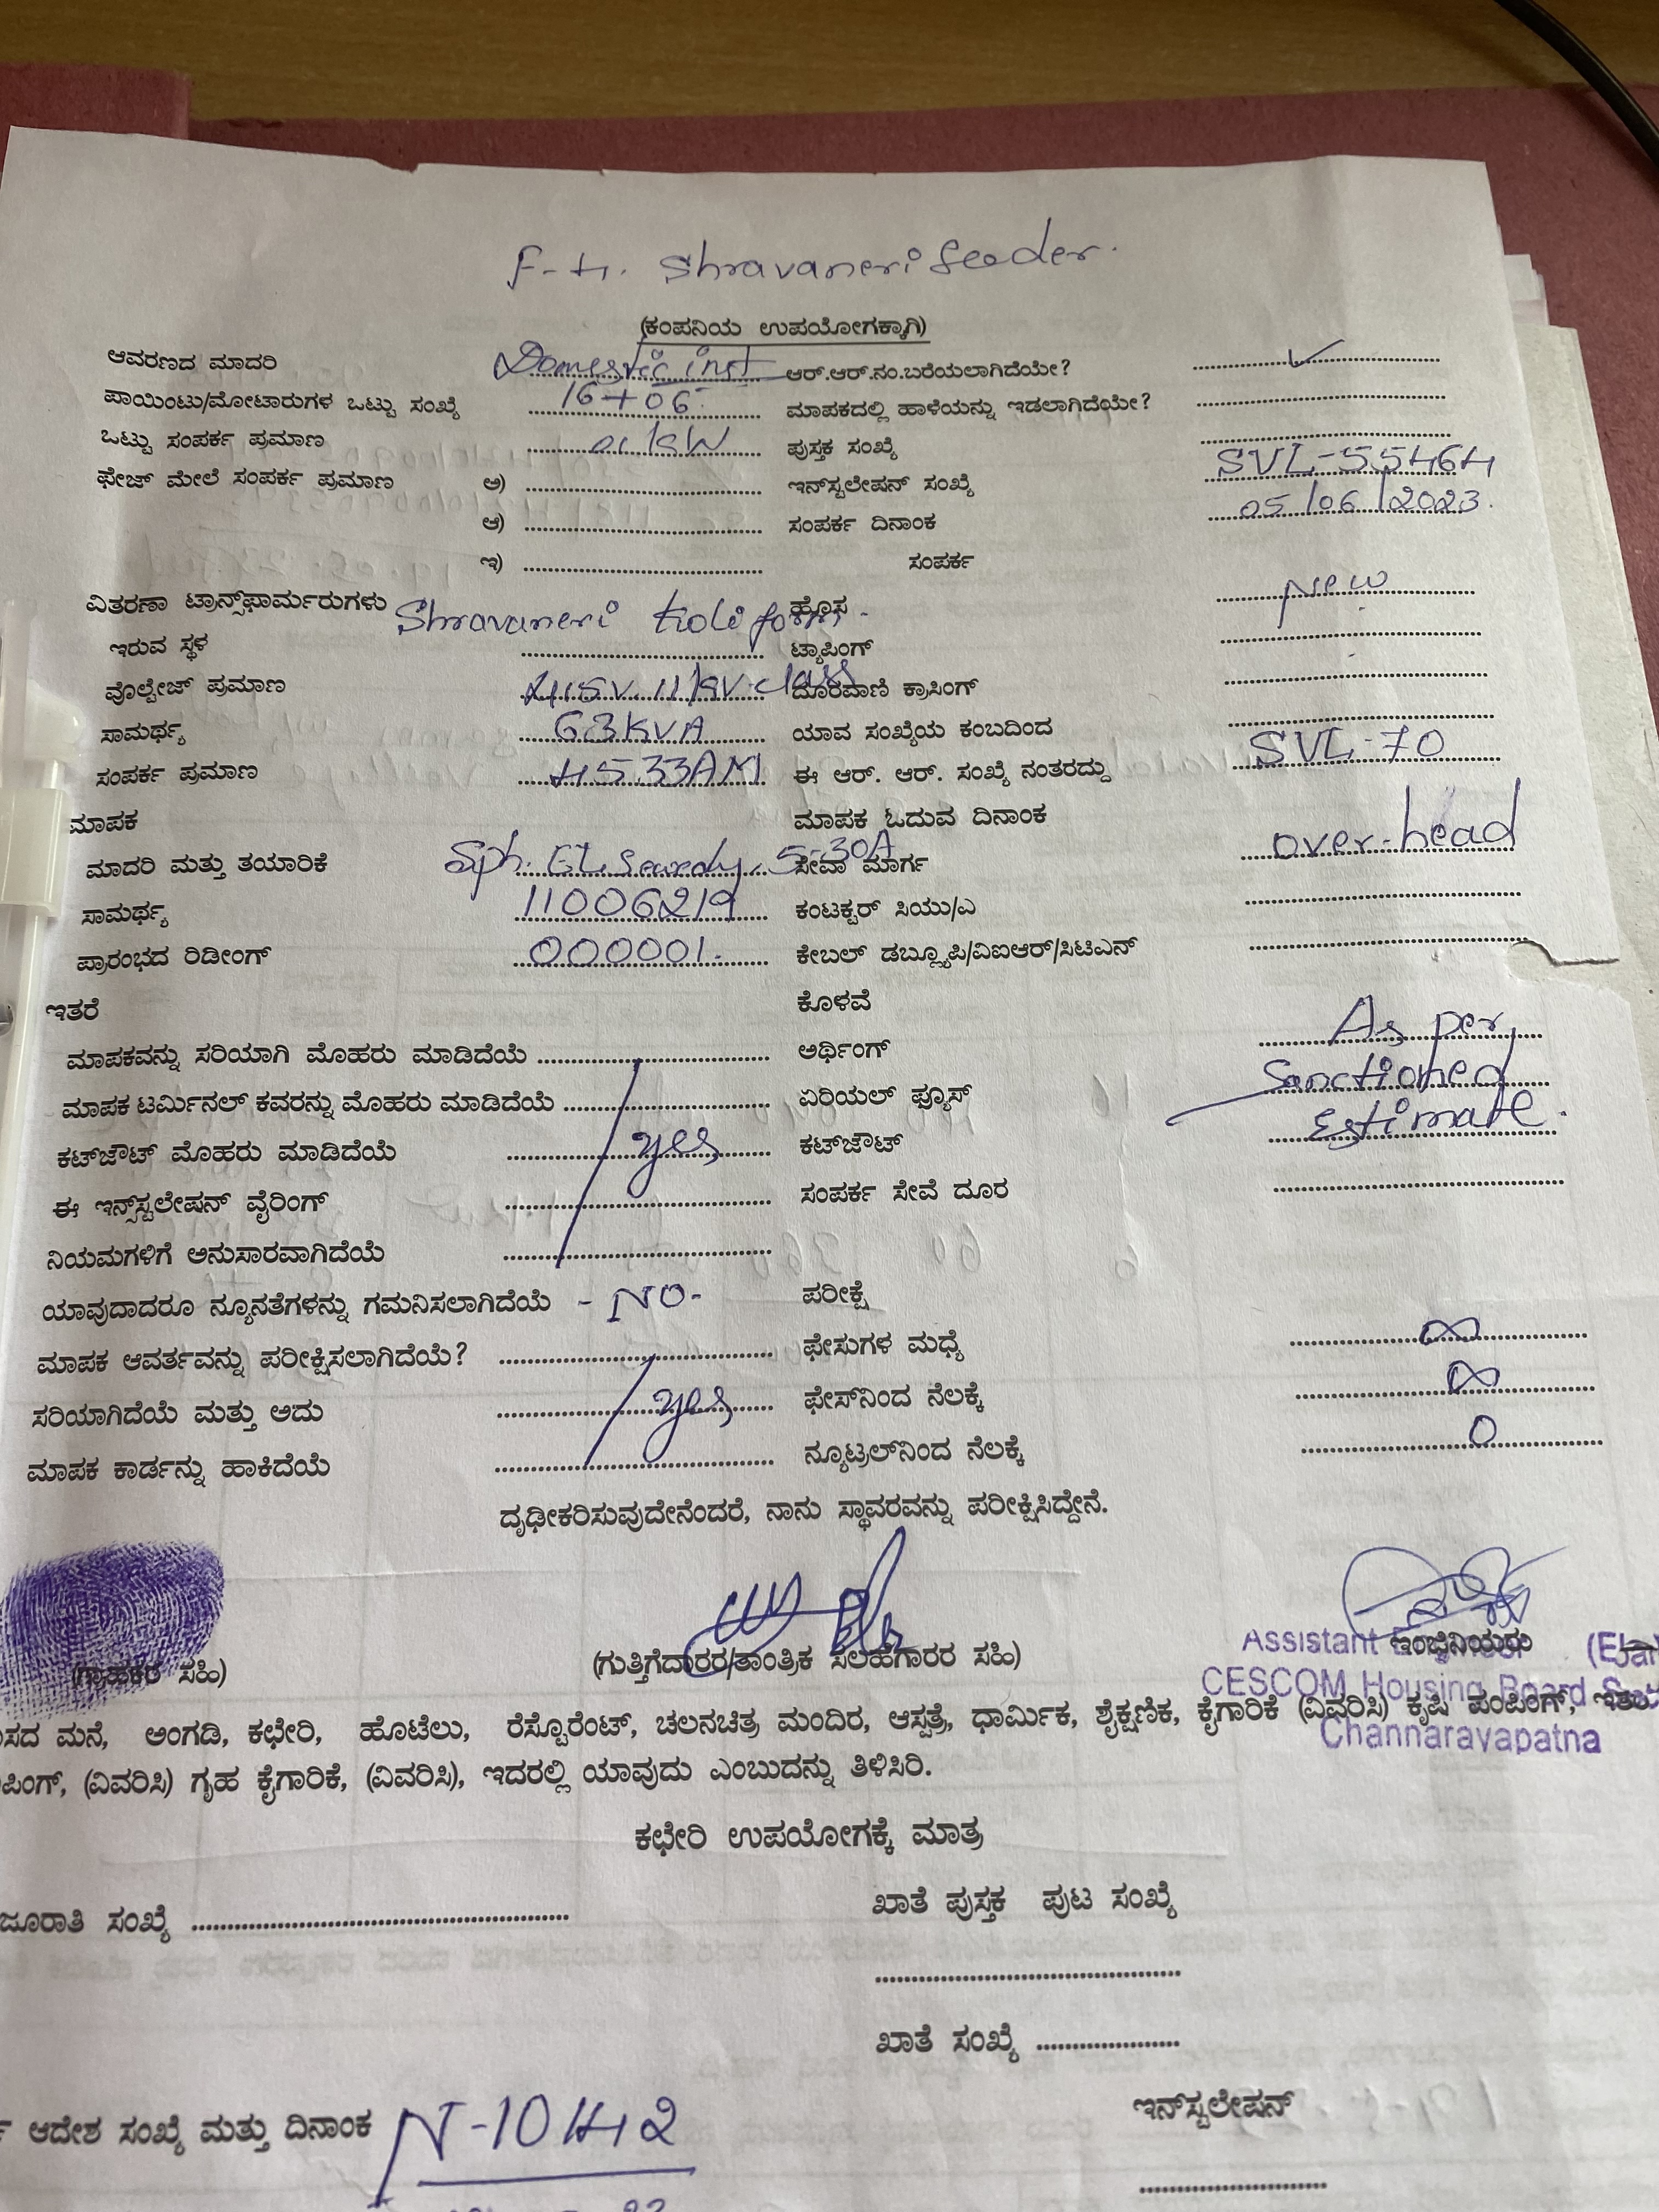 F-4. Shravaneri feeder.
(ಕಂಪನಿಯ ಉಪಯೋಗಕ್ಕಾಗಿ)
ಆವರಣದ ಮಾದರಿ Domestic inst ಆರ್.ಆರ್.ನಂ.ಬರೆಯಲಾಗಿದೆಯೇ? ✓
ಪಾಯಿಂಟು/ಮೋಟಾರುಗಳ ಒಟ್ಟು ಸಂಖ್ಯೆ 16+06 ಮಾಪಕದಲ್ಲಿ ಹಾಳೆಯನ್ನು ಇಡಲಾಗಿದೆಯೇ?
ಒಟ್ಟು ಸಂಪರ್ಕ ಪ್ರಮಾಣ ಪುಸ್ತಕ ಸಂಖ್ಯೆ
ಫೇಜ್ ಮೇಲೆ ಸಂಪರ್ಕ ಪ್ರಮಾಣ ಅ) ಇನ್‌ಸ್ಟಲೇಷನ್ ಸಂಖ್ಯೆ SVL-55464
ಆ) ಸಂಪರ್ಕ ದಿನಾಂಕ 05/06/2023.
ಇ) ಸಂಪರ್ಕ
ವಿತರಣಾ ಟ್ರಾನ್ಸ್‌ಫಾರ್ಮರುಗಳು Shravaneri koli form - ಹೊಸ New
ಇರುವ ಸ್ಥಳ ಟ್ಯಾಪಿಂಗ್
ವೊಲ್ಟೇಜ್ ಪ್ರಮಾಣ 415V. 11kV class ದೂರವಾಣಿ ಕ್ರಾಸಿಂಗ್
ಸಾಮರ್ಥ್ಯ 63KVA ಯಾವ ಸಂಖ್ಯೆಯ ಕಂಬದಿಂದ
ಸಂಪರ್ಕ ಪ್ರಮಾಣ 4533AM ಈ ಆರ್. ಆರ್. ಸಂಖ್ಯೆ ನಂತರದ್ದು SVL-70
ಮಾಪಕ ಮಾಪಕ ಓದುವ ದಿನಾಂಕ
ಮಾದರಿ ಮತ್ತು ತಯಾರಿಕೆ 5-30A ಸೇವಾ ಮಾರ್ಗ over-head
ಸಾಮರ್ಥ್ಯ 11006219 ಕಂಟಕ್ಟರ್ ಸಿಯು/ಎ
ಪ್ರಾರಂಭದ ರಿಡೀಂಗ್ 000001. ಕೇಬಲ್ ಡಬ್ಲ್ಯೂಪಿ/ವಿಐಆರ್/ಸಿಟಿಎನ್
ಇತರೆ ಕೊಳವೆ
ಮಾಪಕವನ್ನು ಸರಿಯಾಗಿ ಮೊಹರು ಮಾಡಿದೆಯೆ ಅರ್ಥಿಂಗ್ As per
ಮಾಪಕ ಟರ್ಮಿನಲ್ ಕವರನ್ನು ಮೊಹರು ಮಾಡಿದೆಯೆ ಏರಿಯಲ್ ಫ್ಯೂಸ್ Sanctioned
ಕಟ್‌ಔಟ್ ಮೊಹರು ಮಾಡಿದೆಯೆ yes ಕಟ್‌ಔಟ್ Estimate.
ಈ ಇನ್ಸ್‌ಸ್ಟಲೇಷನ್ ವೈರಿಂಗ್ ಸಂಪರ್ಕ ಸೇವೆ ದೂರ
ನಿಯಮಗಳಿಗೆ ಅನುಸಾರವಾಗಿದೆಯೆ
ಯಾವುದಾದರೂ ನ್ಯೂನತೆಗಳನ್ನು ಗಮನಿಸಲಾಗಿದೆಯೆ - NO- ಪರೀಕ್ಷೆ
ಮಾಪಕ ಆವರ್ತವನ್ನು ಪರೀಕ್ಷಿಸಲಾಗಿದೆಯೆ? ಫೇಸುಗಳ ಮಧ್ಯೆ ∞
ಸರಿಯಾಗಿದೆಯೆ ಮತ್ತು ಅದು yes ಫೇಸ್‌ನಿಂದ ನೆಲಕ್ಕೆ ∞
ಮಾಪಕ ಕಾರ್ಡನ್ನು ಹಾಕಿದೆಯೆ ನ್ಯೂಟ್ರಲ್‌ನಿಂದ ನೆಲಕ್ಕೆ 0
ದೃಢೀಕರಿಸುವುದೇನೆಂದರೆ, ನಾನು ಸ್ಥಾವರವನ್ನು ಪರೀಕ್ಷಿಸಿದ್ದೇನೆ.
(ಗ್ರಾಹಕರ ಸಹಿ) (ಗುತ್ತಿಗೆದಾರರ/ತಾಂತ್ರಿಕ ಸಲಹೆಗಾರರ ಸಹಿ) ಇಂಜಿನಿಯರು
Assistant Engineer
CESCOM Housing Board
Channarayapatna
ಮನೆ, ಅಂಗಡಿ, ಕಛೇರಿ, ಹೊಟೆಲು, ರೆಸ್ಟೊರೆಂಟ್, ಚಲನಚಿತ್ರ ಮಂದಿರ, ಆಸ್ಪತ್ರೆ, ಧಾರ್ಮಿಕ, ಶೈಕ್ಷಣಿಕ, ಕೈಗಾರಿಕೆ (ವಿವರಿಸಿ) ಕೃಷಿ ಪಂಪಿಂಗ್, ಇತರ
ಪಿಂಗ್, (ವಿವರಿಸಿ) ಗೃಹ ಕೈಗಾರಿಕೆ, (ವಿವರಿಸಿ), ಇದರಲ್ಲಿ ಯಾವುದು ಎಂಬುದನ್ನು ತಿಳಿಸಿರಿ.
ಕಛೇರಿ ಉಪಯೋಗಕ್ಕೆ ಮಾತ್ರ
ಜೂರಾತಿ ಸಂಖ್ಯೆ ಖಾತೆ ಪುಸ್ತಕ ಪುಟ ಸಂಖ್ಯೆ
ಖಾತೆ ಸಂಖ್ಯೆ
ಆದೇಶ ಸಂಖ್ಯೆ ಮತ್ತು ದಿನಾಂಕ N-10442 ಇನ್‌ಸ್ಟಲೇಷನ್